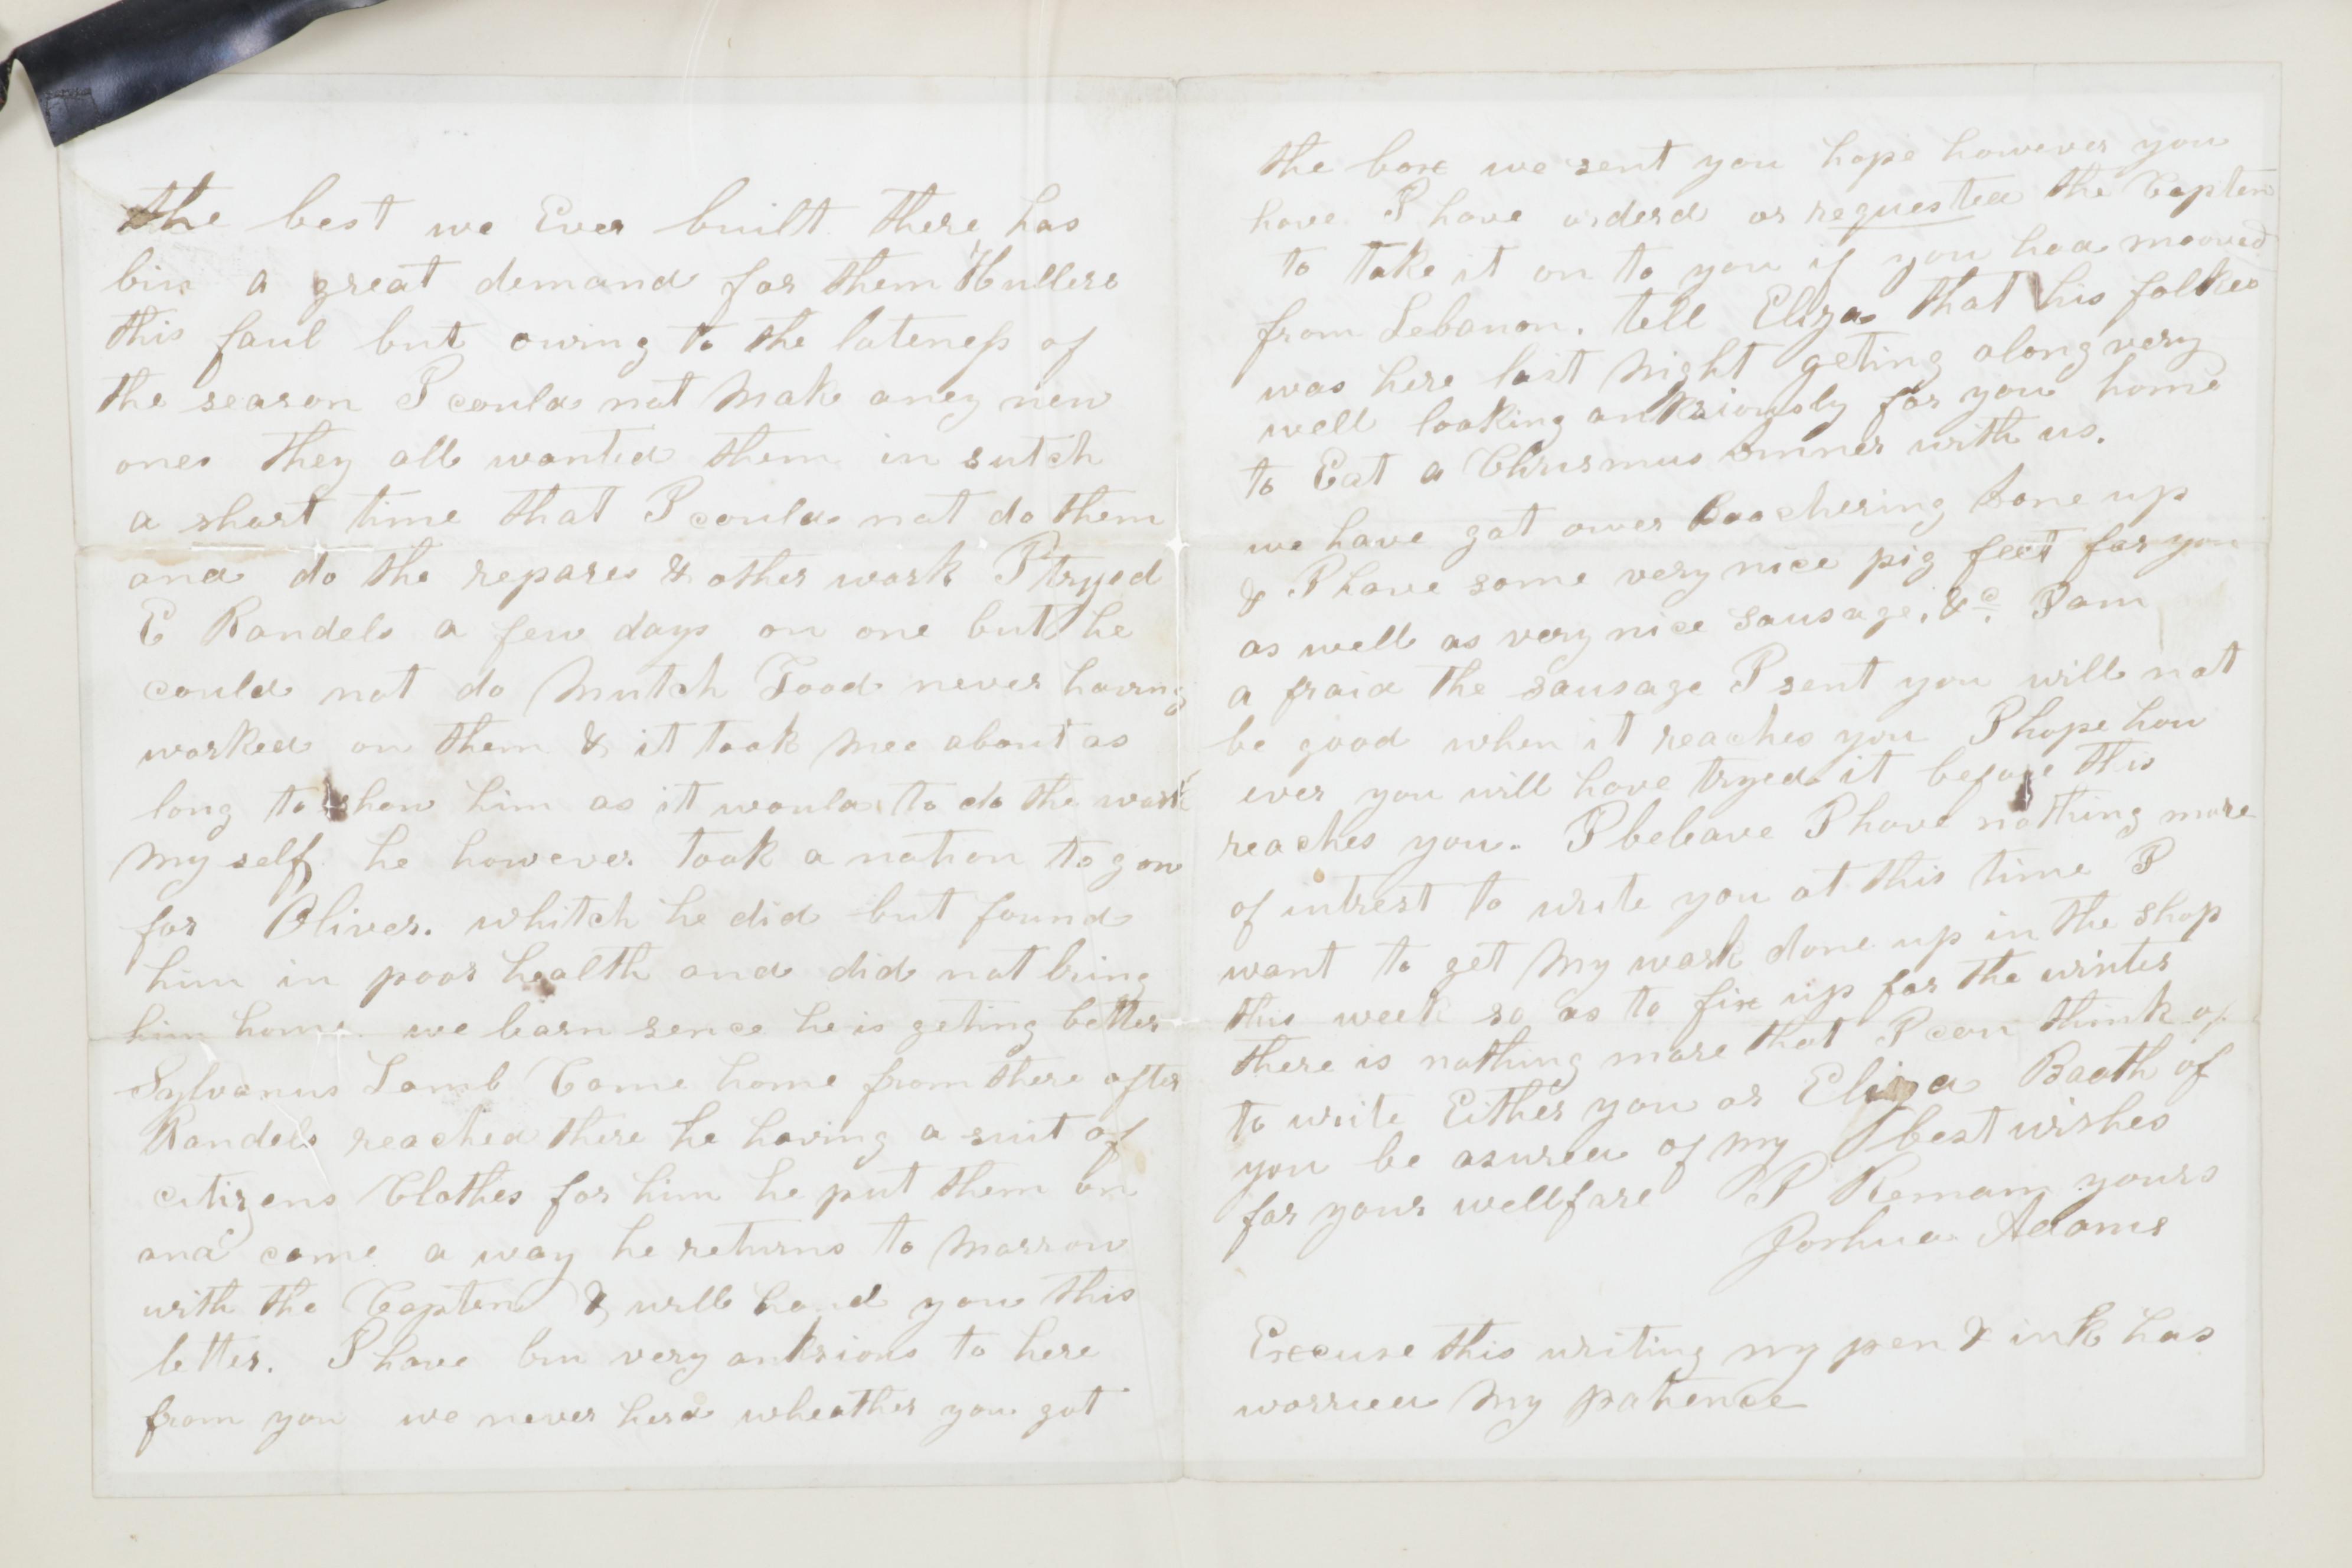 the best we Ever built there has
bin a great demand for them Hullers
this faul but owing to the lateness of
the season I could not Make aney new
ones they all wanted them in sutch
a short time that I could not do them
and do the repares & other work I tryed
E Randels a few days on one but he
could not do Mutch Good never having
worked on them & it took Mee about as
long to show him as it would to do the work
My self. he however took a notion to gow
for Oliver. whitch he did but found
him in poor health and did not bring
him home we learn sence he is geting better
Sylvanus Lamb Came home from there after
Randels reached there he having a suit of
citizens Clothes for him he put them on
and came a way he returns to Morrow
with the Capten & will hand you this
letter. I have bin very anksious to here
from you we never herd wheather you got
the box we sent you hope however you
have I have orderd or requested the Capten
to take it on to you if you had mooved
from Lebanon. tell Eliza that his folkes
was here last Night geting along very
well looking anksiously for you home
to Eat a Chrismus Dinner with us.
we have got over Boochering Done up
& I have some very nice pig feet for you
as well as very nice Sausage, &c. I am
a fraid the Sausage I sent you will not
be good when it reaches you I hope how
ever you will have tryed it before this
reaches you. I beleave I have nothing more
of intrest to write you at this time I
want to get My work done up in the Shop
this week so as to fix up for the winter
there is nothing more that I can think of
to write Either you or Eliza Booth of
you be asured of my best wishes
for your wellfare I Remain yours
Joshua Adams
Excuse this writing my pen & ink has
worried My patience